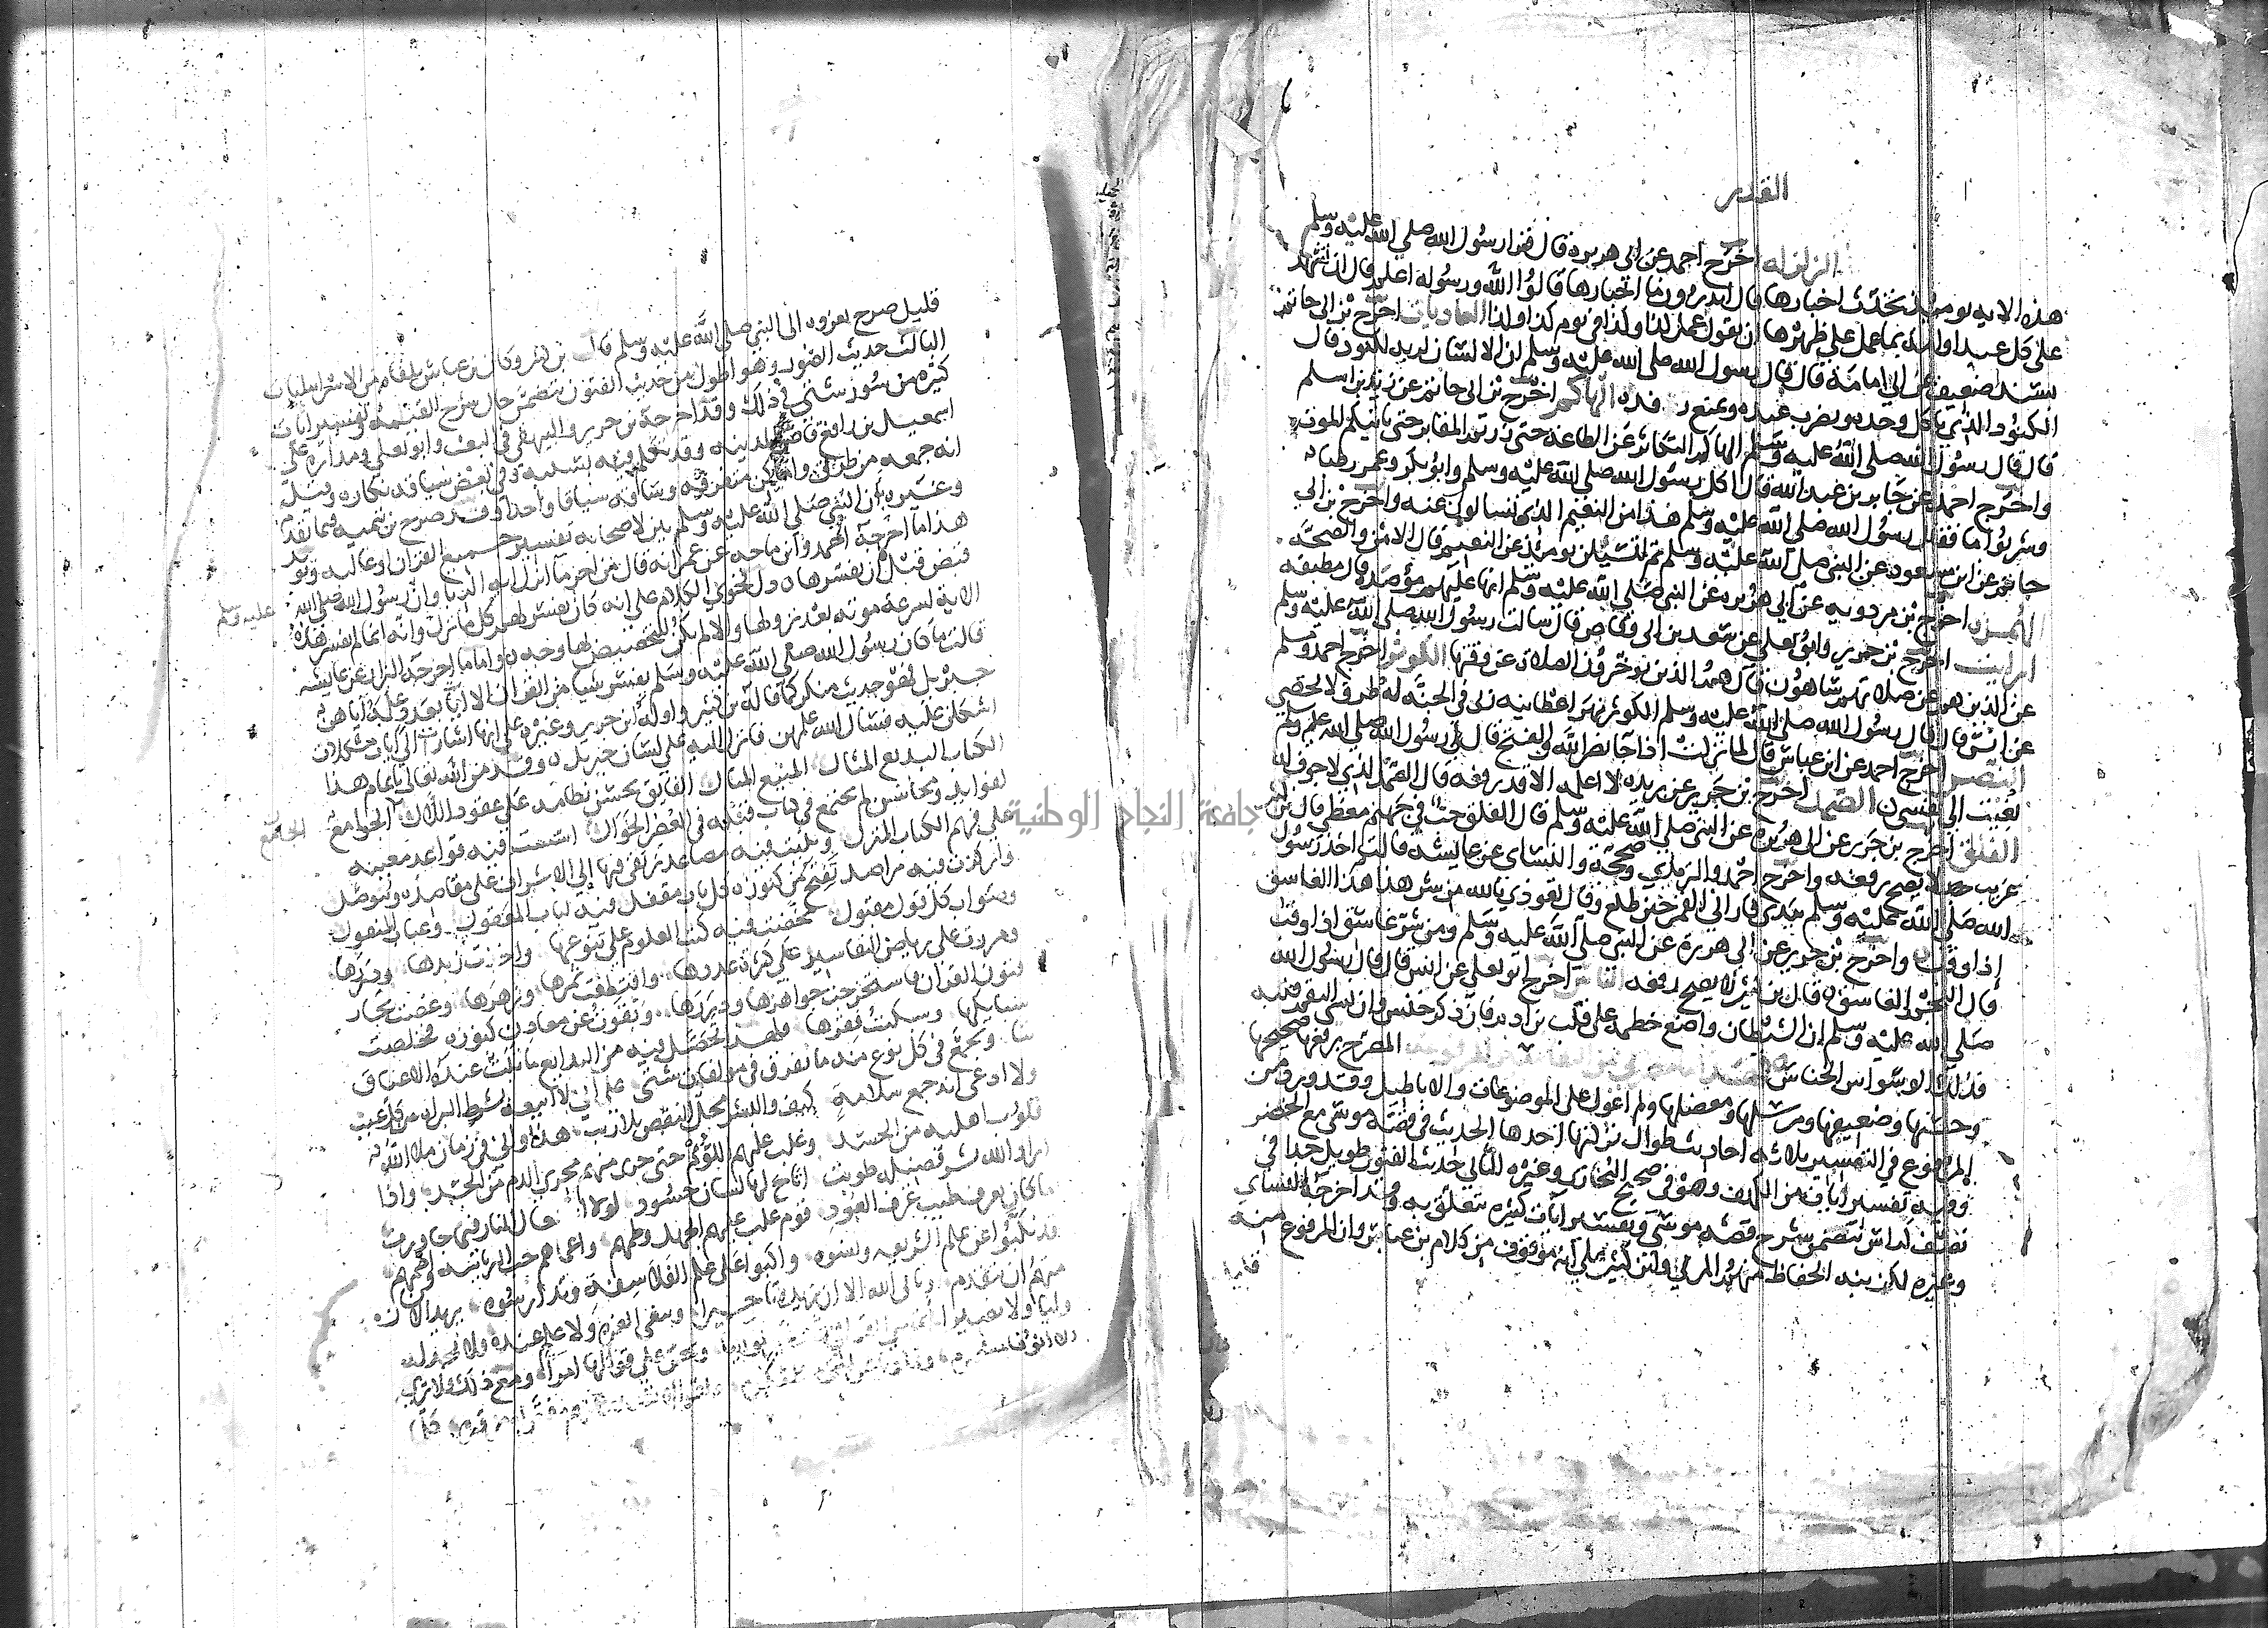 القدر
الزلزلة اخرج احمد عن ابي هريرة قال قرا رسول الله صلي الله عليه وسلم
هذه الايه يومئذ تحدث اخبارها قال اتدرون ما اخبارها قالوا الله ورسوله اعلم قال ان تشهد
على كل عبد او امة بما عمل علي ظهرها ان تقول عمل كذا وكذا في يوم كذا وكذا العاديات اخرج بن ابي حاتم
بسند ضعيف عن ابي امامة قال قال رسول الله صلى الله عليه وسلم ان الانسان لربه لكنود قال
الكنود الذي ياكل وحده ويضرب عبده ويمنع رفده الهاكم اخرج بن ابي حاتم عن زيد بن اسلم
قال قال رسول الله صلى الله عليه وسلم الهاكم التكاثر عن الطاعة حتى زرتم المقابر حتى ياتيكم الموت
واخرج احمد عن جابر بن عبد الله قال اكل رسول الله صلى الله عليه وسلم وابو بكر وعمر رطبا
وشربوا ما فقال رسول الله صلى الله عليه وسلم هذا من النعيم الذي تسالون عنه واخرج بن ابي
حاتم عن ابن مسعود عن النبي صلى الله عليه وسلم ثم لتسئلن يومئذ عن النعيم قال الامن والصحة
الهمزة اخرج بن مردويه عن ابي هريرة عن النبي صلى الله عليه وسلم انها عليهم مؤصدة قال مطبقة
ارايت اخرج بن جرير وابو يعلى عن سعد بن ابي وقاص قال سالت رسول الله صلى الله عليه وسلم
عن الذين هم عن صلاتهم ساهون قال هم الذين يؤخرون الصلاة عن وقتها الكوثر اخرج احمد ومسلم
عن انس قال قال رسول الله صلى الله عليه وسلم الكوثر نهر اعطانيه ربي في الجنة له طرق لا تحصي
النصر اخرج احمد عن ابن عباس قال لما نزلت اذا جا نصر الله والفتح قال رسول الله صلى الله عليه وسلم
نعيت الي نفسي الصمد اخرج بن جرير عن بريدة لا اعلمه الا قد رفعه قال الصمد الذي لا جوف له
الفلق اخرج بن جرير عن ابي هريرة عن النبي صلى الله عليه وسلم قال الفلق جب في جهنم مغطي قال بن كثير
غريب لا يصح رفعه واخرج احمد والترمذي وصححه والنساي عن عايشة قالت اخذ رسول
الله صلى الله عليه وسلم بيدي فاراني القمر حين طلع وقال تعوذي بالله من شر هذا هذا الغاسق
إذا وقب واخرج بن جرير عن ابي هريرة عن النبي صلى الله عليه وسلم ومن شر غاسق اذا وقب
قال النجم الغاسق قال بن كثير لا يصح رفعه الناس اخرج ابو يعلى عن انس قال قال رسول الله
صلى الله عليه وسلم ان الشيطان واضع خطمه على قلب بن ادم فان ذكر خنس وان نسي التقم قلبه
فذلك الوسواس الخناس المصرح برفعها صحيحها
وحسنها وضعيفها ومرسلها ومعضلها ولم اعول على الموضوعات والاباطيل وقد ورد من
المرفوع في التفسير ثلاثة احاديث طوال تركتها احدها الحديث في قصة موسى مع الخضر
وفيه تفسير ايات من الكهف وهو في صحيح البخاري وغيره الثاني حديث الفتون طويل جدا في
نصف كراس يتضمن شرح قصة موسى وتفسير آيات كثيرة تتعلق به وقد اخرجه النساي
وغيره لكن نبه الحفاظ منهم المزي وابن كثير على انه موقوف من كلام بن عباس وان المرفوع منه
قليل
قليل صرح بعزوه الى النبي صلى الله عليه وسلم قال بن كثير وكان بن عباس تلقاه من الاسرائيليات
الثالث حديث الصور وهو اطول من حديث الفتون يتضمن حال شرح القيمة وتفسير ايات
كثيرة من سور شتى في ذلك وقد اخرجه بن جرير والبيهقي في البعث وابو يعلي ومداره على
اسمعيل بن رافع قاضي المدينة وقد تكلم فيه بسببه وفي بعض سياقه نكارة وقيل
انه جمعه من طرق واماكن متفرقة وساقه سياقا واحدا وقد صرح بن تيمية فيما تقدم
وغيره بان النبي صلى الله عليه وسلم بين لاصحابه تفسير جميع القران او غالبه ويؤيد
هذا ما اخرجه احمد وابن ماجه عن عمر انه قال من اخر ما انزل اية الربا وان رسول الله صلى الله عليه وسلم
قبض قبل ان يفسرها دل فحوى الكلام على انه كان يفسر لهم كل ما نزل وانه انما لم يفسر هذه
الاية لسرعة موته بعد نزولها والا لم يكن للتخصيص لها وجه واما ما اخرجه البزار عن عايشة
قالت ما كان رسول الله صلى الله عليه وسلم يفسر شيا من القران الا ايا بعدد علمه اياهن
جبريل فهو حديث منكر كما قاله بن كثير واوله ابن جرير وغيره على انها اشارات الى ايات مشكلات
اشكلن عليه فسال الله علمهن فانزل اليه على لسان جبريل وقد من الله تعالى باتمام هذا
الكتاب البديع المثال المنيع المنال الفايق بحسن نظامه على عقود اللآل الجامع
لفوايد ومحاسن لم تجتمع في كتاب قبله في العصر الخوال اسست فيه قواعد معينة
على فهم الكتاب المنزل وبينت فيه مصاعد يرتقى فيها إلى الاشراف على مقاصده ويتوصل
واركزت فيه مراصد تفتح من كنوزه كل باب مقفل فيه لباب العقول وعباب المنقول
وصواب كل قول مقبول محضت فيه كتب العلوم على تنوعها واخذت زبدها ودرها
ومررت على رياض التفاسير على كثرة عددها واقتطفت ثمرها وزهرها وغصت بحار
فنون القران فاستخرجت جواهرها ودررها وبقرت عن معادن كنوزه فخلصت
سبايكها وسبكت فقرها فلهذا تحصل فيه من البدايع ما تبت عنده الاعناق
بتا وتجمع في كل نوع منه ما تفرق في مولفات شتى على اني لا ابيعه بشرط البراءة من كل عيب
ولا ادعي انه جمع سلامة كيف والبشر محل النقص بلا ريب هذا واني في زمان ملا الله
قلوب اهليه من الحسد وغلب عليهم اللؤم حتى جرى منهم مجرى الدم من الجسد واذا
اراد الله نشر فضيلة طويت اتاح لها لسان حسود لولا اشتعال النار فيما جاورت
ما كان يعرف طيب عرف العود قوم غلب عليهم الجهل وطمهم واعماهم حب الرياسة واصمهم
قد نكبوا عن علم الشريعة ونسوه واكبوا على علم الفلاسفة وتدارسوه يريد الانسان
منهم ان يتقدم ويابى الله الا ان يزيده تاخيرا ويبغى العز ولا علم عنده فلا يجد له